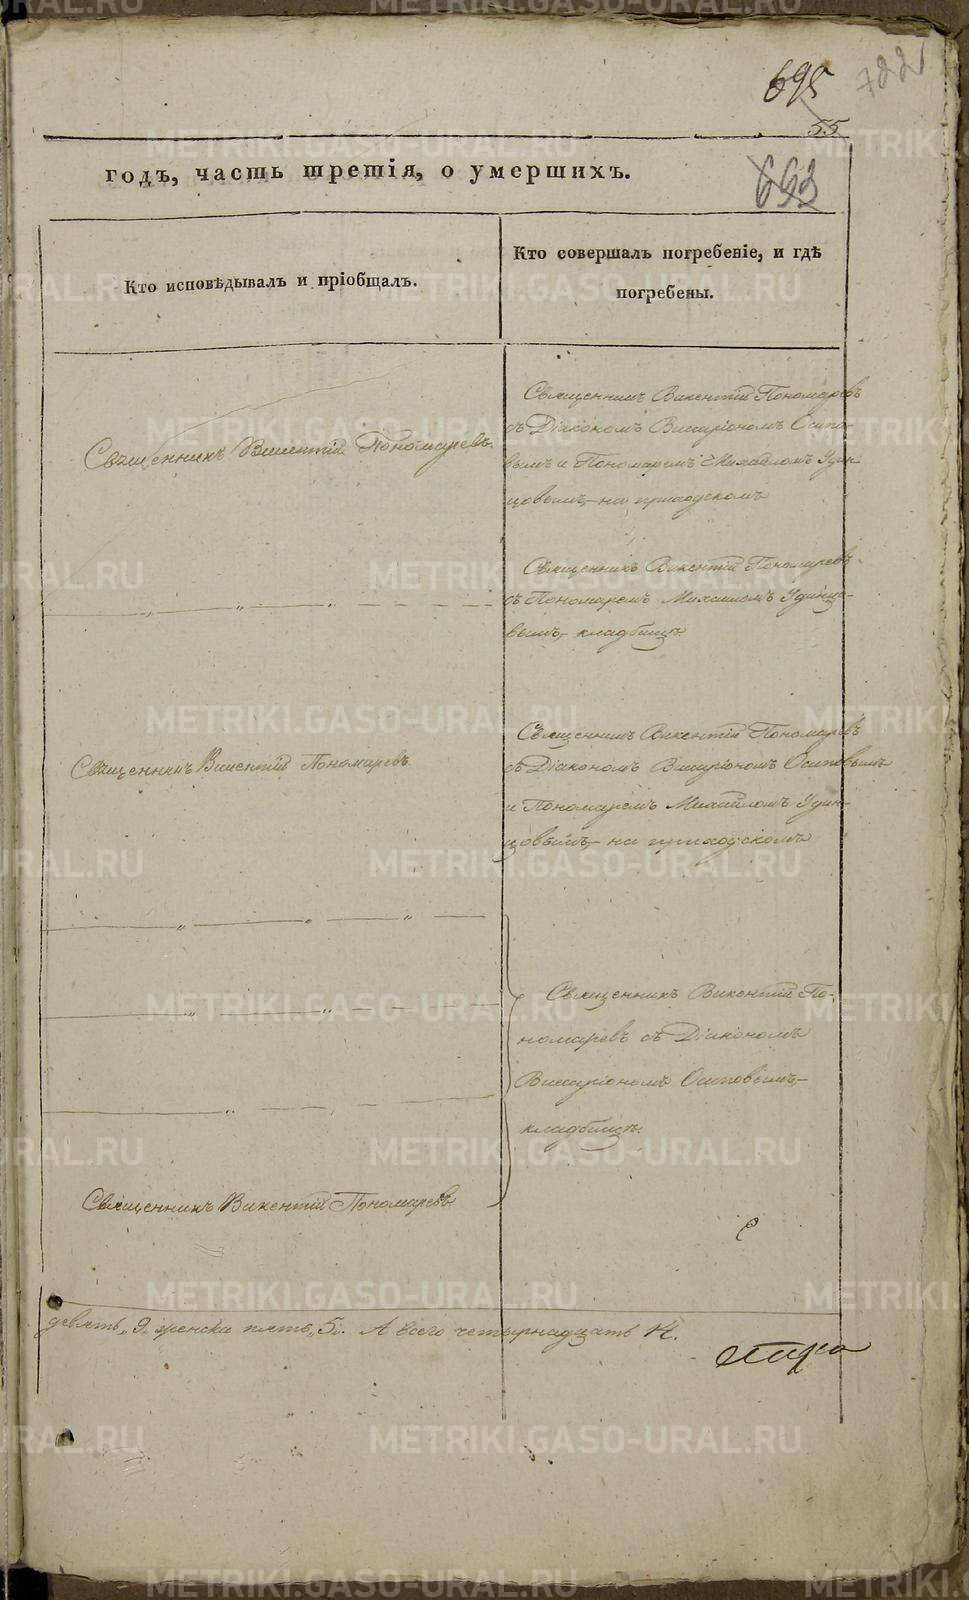 695
7221
55
годъ, часть третія, о умершихъ.
653
Кто исповѣдывалъ и пріобщалъ.
Кто совершалъ погребеніе, и гдѣ
погребены.
Священникъ Викентій Пономаревъ.
Священникъ Викентій Пономаревъ
съ Діакономъ Виссаріономъ Осипо-
вымъ и Пономаремъ Михайломъ Удин
цовымъ, на приходскомъ
Священникъ Викентій Пономаревъ
съ Пономаремъ Михаиломъ Удинцо-
вымъ, кладбищѣ.
Священникъ Викентій Пономаревъ
Священникъ Викентій Пономаревъ
съ Діакономъ Виссаріономъ Осиповымъ
и Пономаремъ Михайломъ Удин-
цовымъ, на приходскомъ
Священникъ Викентій По-
номаревъ съ Діакономъ
Виссаріономъ Осиповымъ,
кладбищѣ.
Священникъ Викентій Пономаревъ
девять, 9. женска пять, 5. А всего четырнадцать 14.
METRIKI.GASO-URAL.RU